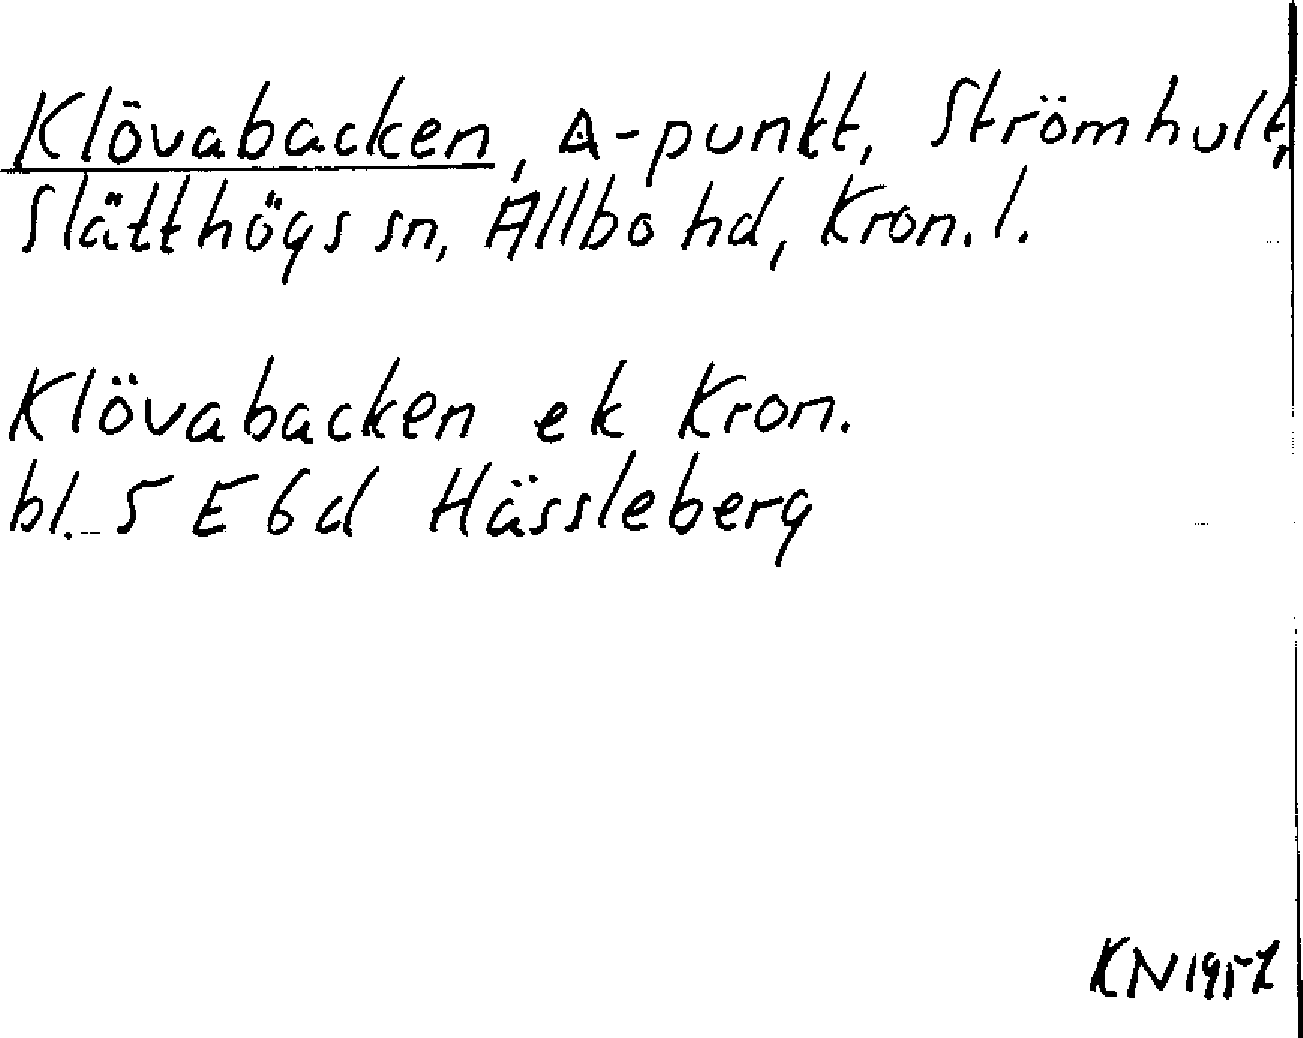 Klövabacken, Δ-punkt, Strömhult,
Slätthögs sn, Allbo hd, Kron. l.
Klövabacken ek Kron.
bl. 5 E 6d Hässleberg
KN 1952